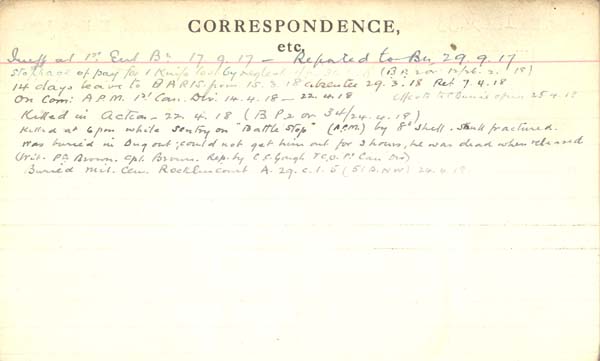 CORRESPONDENCE,
etc.
at 1st Ent Bn 17.9.17 — Reported to Bn 29.9.17
Stoppage of pay for 1 Knife lost by neglect (B P. 2 or 18)
14 days leave to PARIS from 15.3.18 29.3.18 Ret 7.4.18
On Com: A.P.M. 1st Can. Div. 14.4.18 — 22.4.18 Effects to 25.4.18
Killed in Action — 22.4.18 (B P 2 or 34/24.4.18)
Killed at 6pm while sentry on "Battle Stop" (A.P.M.) by 8" shell. Skull fractured.
Was buried in Dug out; could not get him out for 3 hours, he was dead when released
(Wit. Pte Brown. Cpl. Brown. Rep. by C.F. Gough 1st Can Div)
Buried Mil. Cem. Roclincourt A.29.c.1.5 (51B.NW) 24.4.18